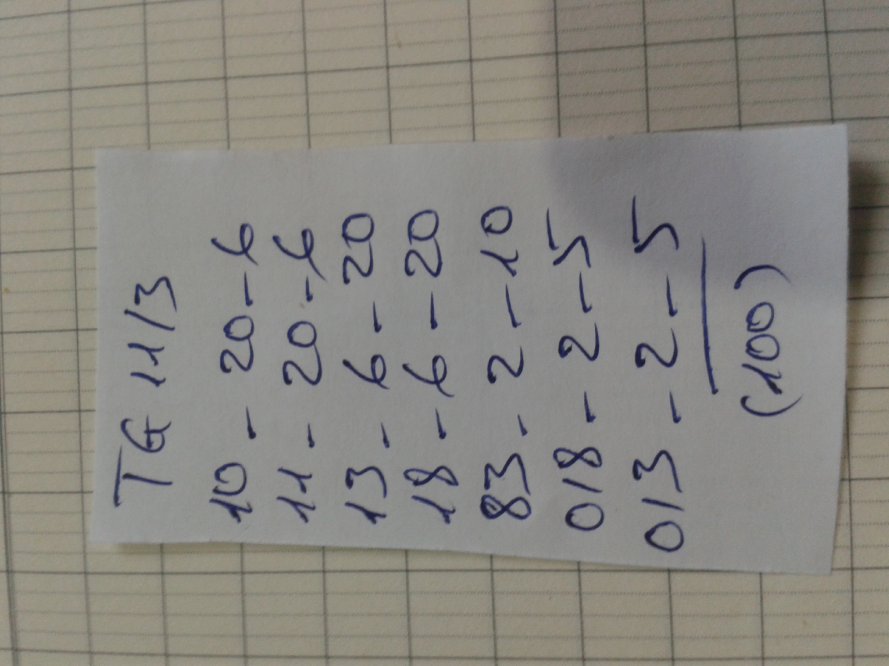 TG 11/3
10 - 20 - 6
11 - 20 - 6
13 - 6 - 20
18 - 6 - 20
83 - 2 - 10
018 - 2 - 5
013 - 2 - 5
(100)